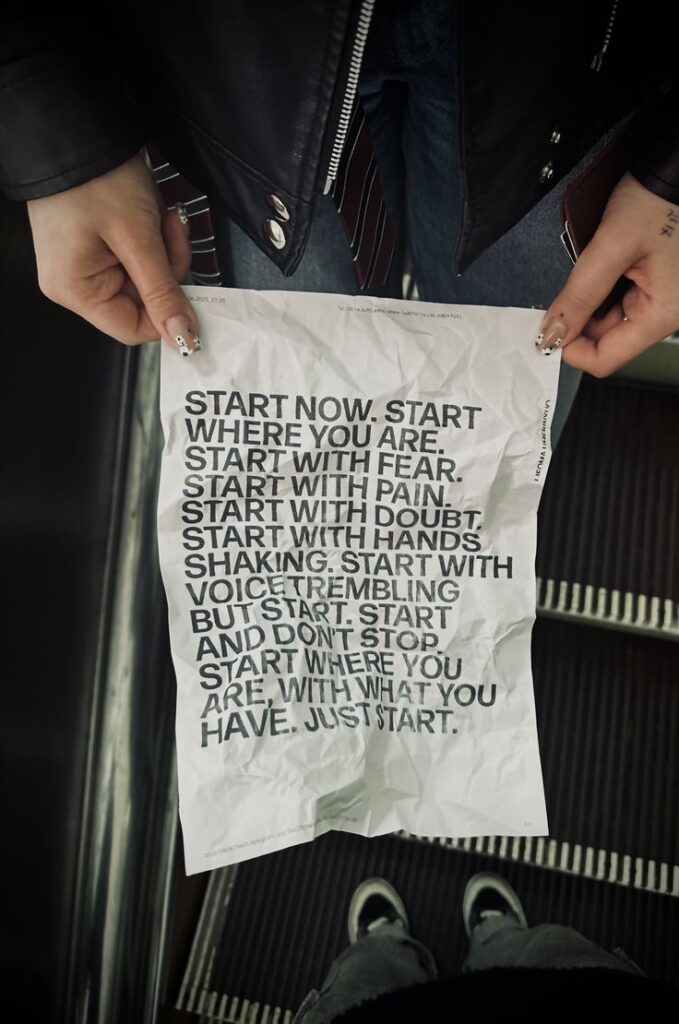 START NOW. START
WHERE YOU ARE.
START WITH FEAR.
START WITH PAIN.
START WITH DOUBT.
START WITH HANDS
SHAKING. START WITH
VOICE TREMBLING
BUT START. START
AND DON'T STOP.
START WHERE YOU
ARE, WITH WHAT YOU
HAVE. JUST START.
1/1